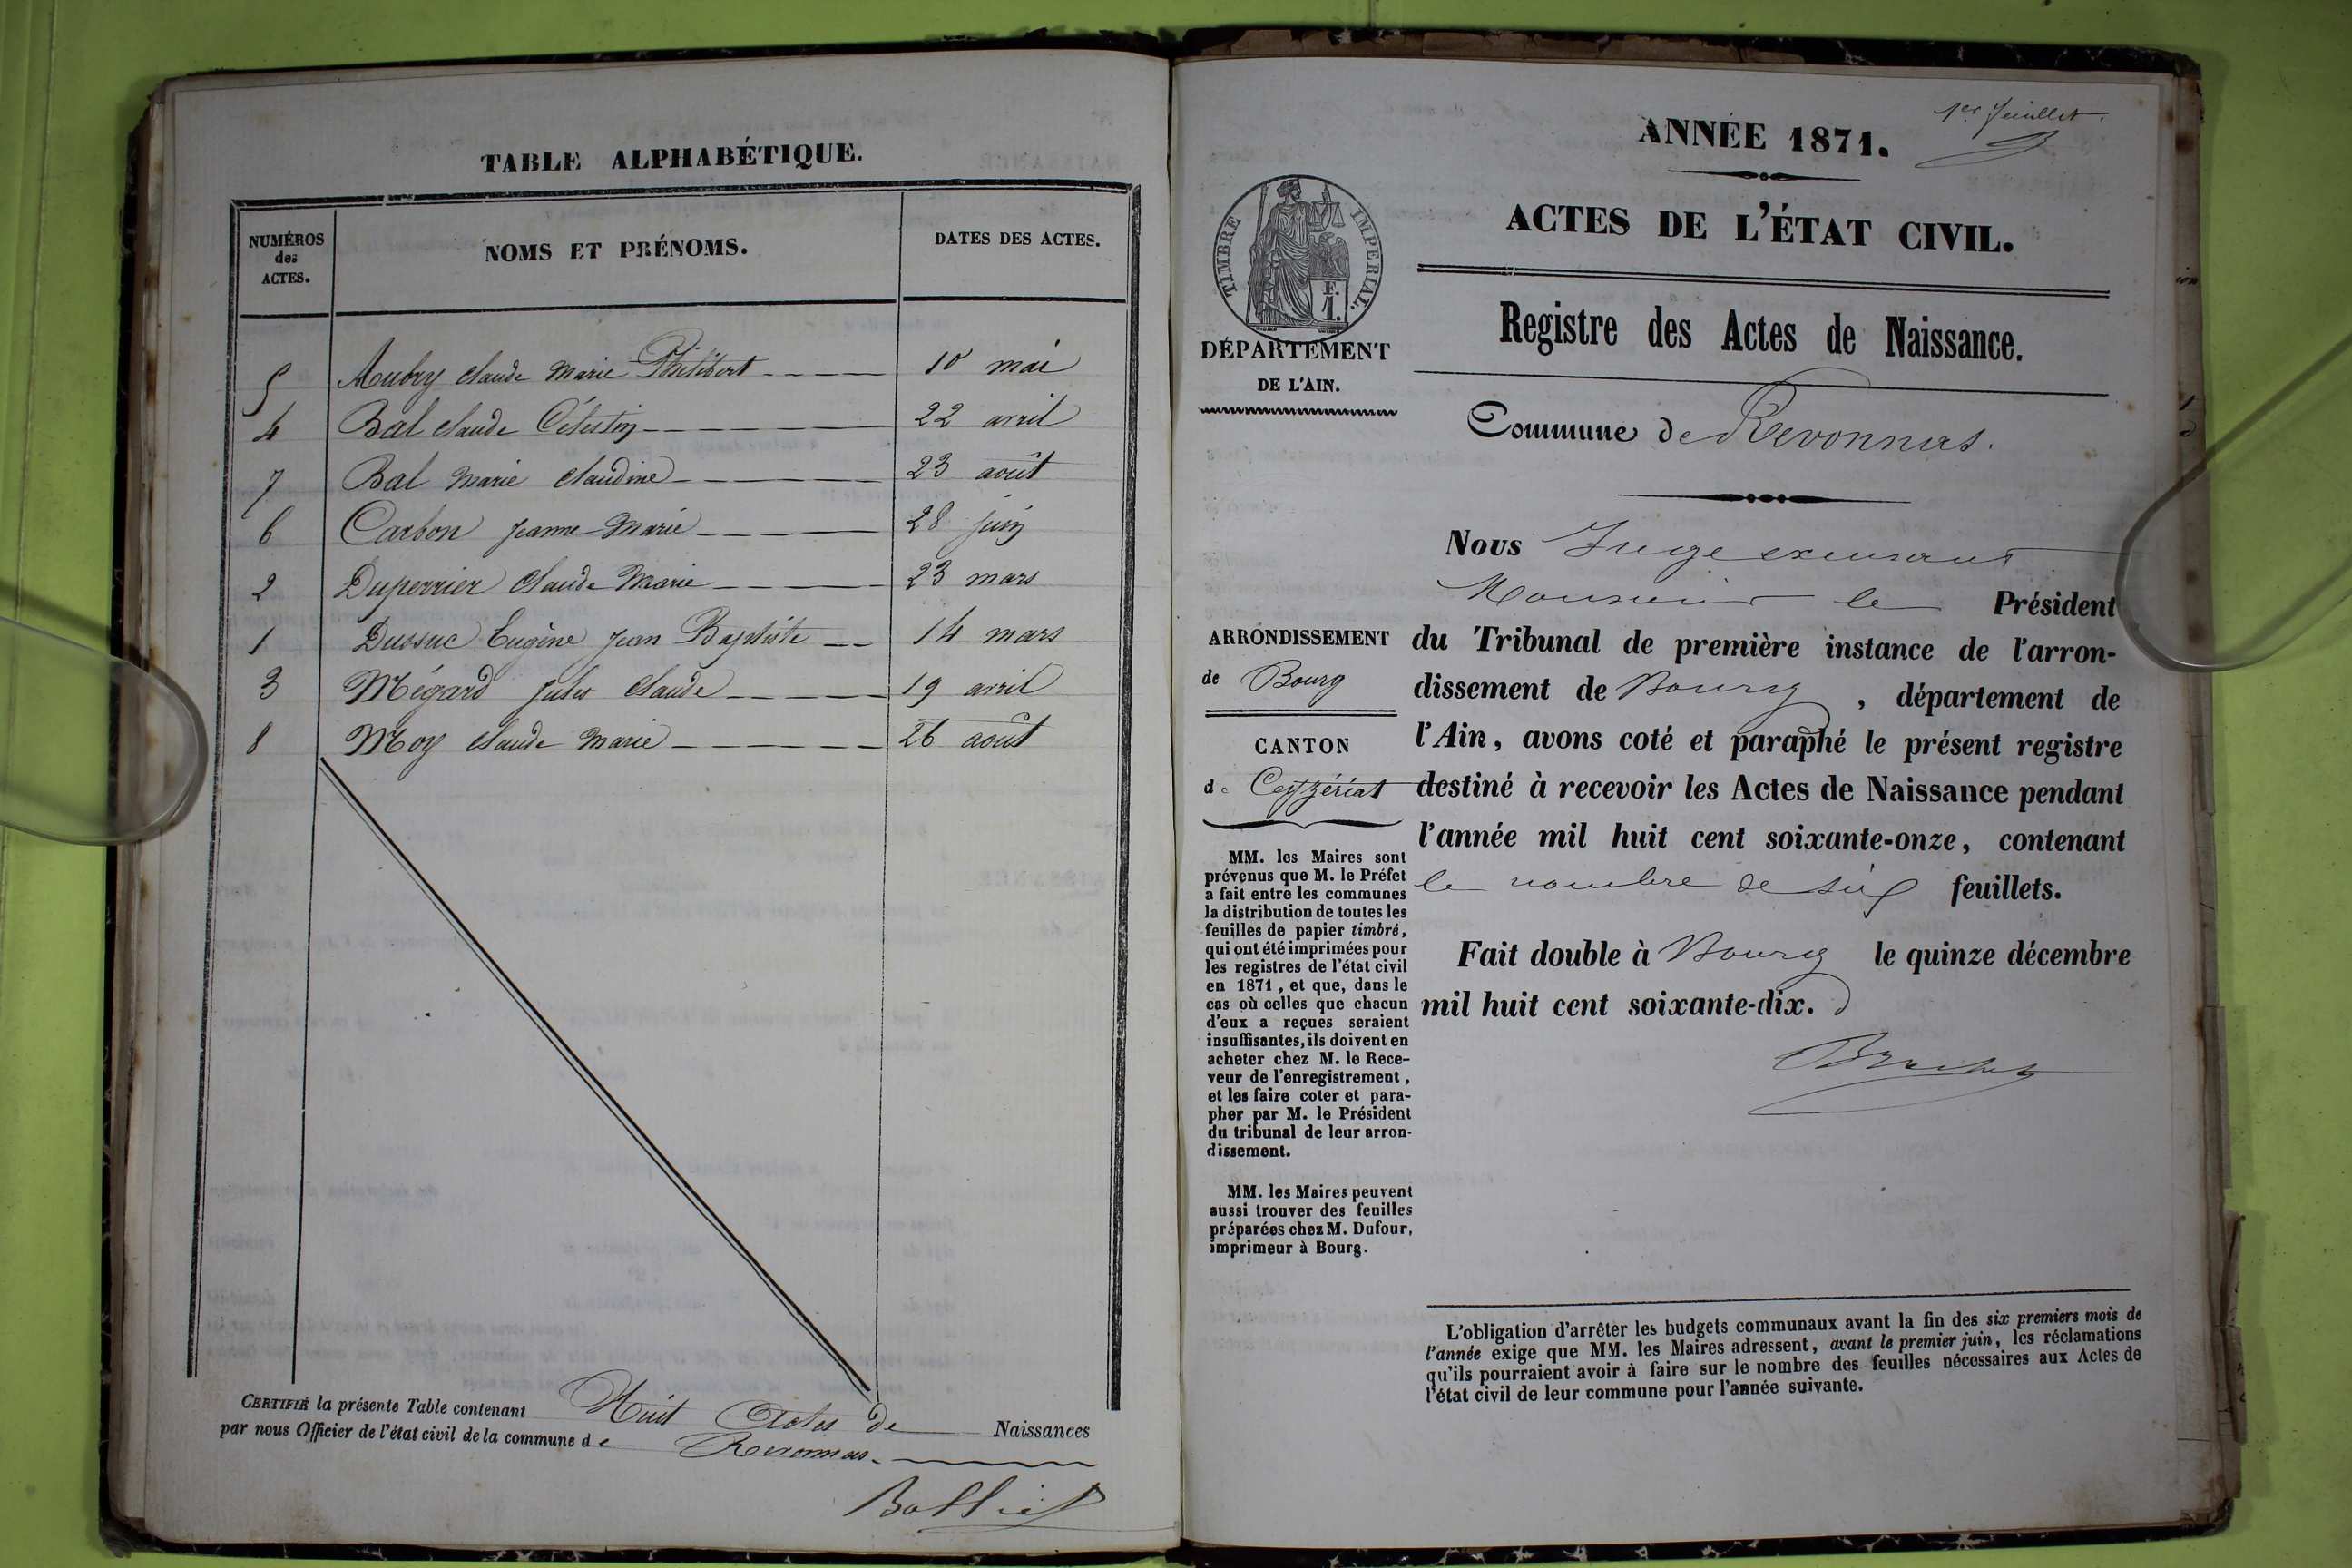 TABLE ALPHABÉTIQUE.
NUMÉROS des ACTES. NOMS ET PRÉNOMS. DATES DES ACTES.
5 Aubry Claude Marie Philibert 10 mai
4 Bal Claude Célestin 22 avril
7 Bal Marie Claudine 23 août
6 Carbon Jeanne Marie 28 juin
2 Duperrier Claude Marie 23 mars
1 Dussuc Eugène Jean Baptiste 14 mars
3 Mégard Jules Claude 19 avril
8 Moy Claude Marie 26 août
CERTIFIÉ la présente Table contenant Huit Actes de Naissances
par nous Officier de l'état civil de la commune de Revonnas.
1er feuillet.
ANNÉE 1871.
ACTES DE L'ÉTAT CIVIL.
Registre des Actes de Naissance.
Commune de Revonnas.
TIMBRE IMPERIAL.
F.
1.
DÉPARTEMENT
DE L'AIN.
ARRONDISSEMENT
de Bourg
CANTON
de Ceyzériat
MM. les Maires sont
prévenus que M. le Préfet
a fait entre les communes
la distribution de toutes les
feuilles de papier timbré,
qui ont été imprimées pour
les registres de l'état civil
en 1871, et que, dans le
cas où celles que chacun
d'eux a reçues seraient
insuffisantes, ils doivent en
acheter chez M. le Rece-
veur de l'enregistrement,
et les faire coter et para-
pher par M. le Président
du tribunal de leur arron-
dissement.
MM. les Maires peuvent
aussi trouver des feuilles
préparées chez M. Dufour,
imprimeur à Bourg.
Nous Juge
Monsieur le Président
du Tribunal de première instance de l'arron-
dissement de Bourg, département de
l'Ain, avons coté et paraphé le présent registre
destiné à recevoir les Actes de Naissance pendant
l'année mil huit cent soixante-onze, contenant
le nombre de six feuillets.
Fait double à Bourg le quinze décembre
mil huit cent soixante-dix.
L'obligation d'arrêter les budgets communaux avant la fin des six premiers mois de
l'année exige que MM. les Maires adressent, avant le premier juin, les réclamations
qu'ils pourraient avoir à faire sur le nombre des feuilles nécessaires aux Actes de
l'état civil de leur commune pour l'année suivante.